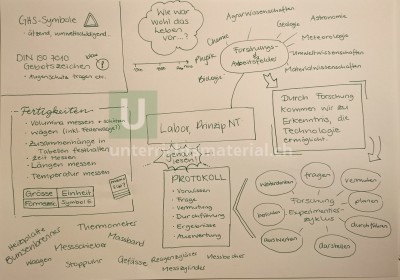 GHS-Symbole
• ätzend, umweltschädigend...
DIN ISO 7010
Gebotszeichen
• Augenschutz tragen etc.
Wie war
wohl das
Leben
vor...?
Agrarwissenschaften
Geologie
Astronomie
Meteorologie
Umweltwissenschaften
Materialwissenschaften
Chemie
Physik
Biologie
Forschungs-
& Arbeitsfelder
Fertigkeiten
• Volumina messen +
• wägen (inkl. Feinwaage!)
• Zusammenhänge in
Tabellen festhalten
• Zeit messen
• Längen messen
• Temperatur messen
Grösse
Einheit
Formelz.
Symbol E
U
Labor, Prinzip NT
unterrichtsmaterial.ch
genau
lesen!
PROTOKOLL
• Vorwissen
• Frage
• Vermutung
• Durchführung
• Ergebnisse
• Auswertung
Durch Forschung
kommen wir zu
Erkenntnis, die
Technologie
ermöglicht.
Forschung
Experimentier-
zyklus
fragen
vermuten
planen
durchführen
darstellen
auswerten
weiterdenken
Heizplatte
Bunsenbrenner
Thermometer
Massband
Messschieber
Waagen
Stoppuhr
Gefässe
Reagenzgläser
Messbecher
Messzylinder